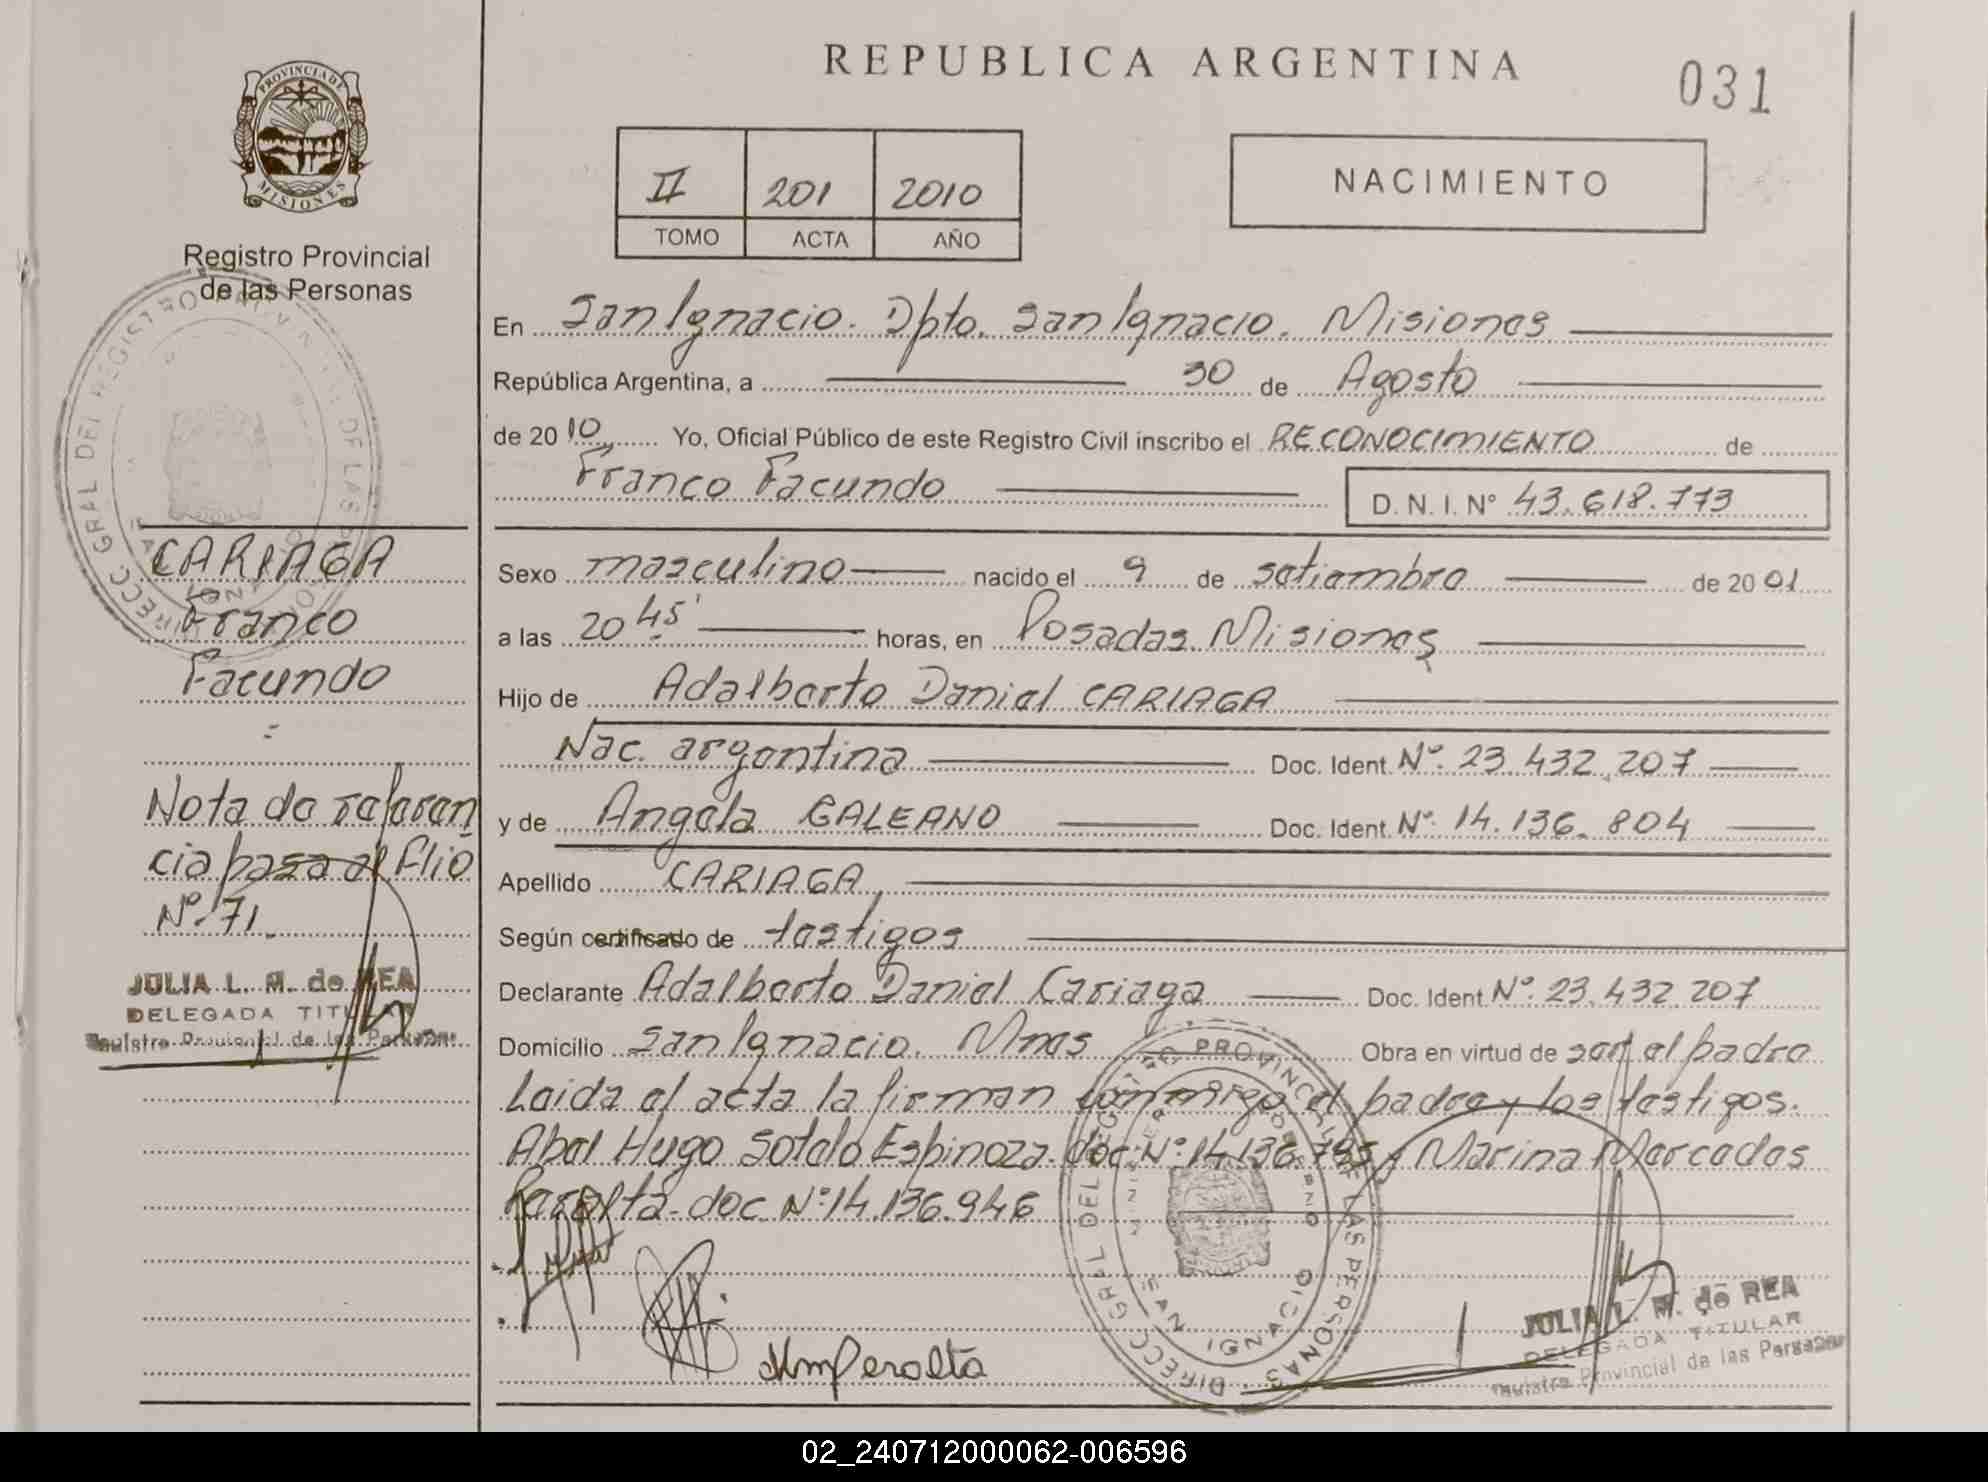 REPUBLICA ARGENTINA
031
PROVINCIA DE
MISIONES
Registro Provincial
de las Personas
II 201 2010
TOMO ACTA AÑO
NACIMIENTO
En San Ignacio. Dpto. San Ignacio. Misiones
República Argentina, a 30 de Agosto
de 2010 Yo, Oficial Público de este Registro Civil inscribo el RECONOCIMIENTO de
Franco Facundo D. N. I. Nº 43.618.773
Sexo masculino nacido el 9 de setiembre de 2001
a las 20 45' horas, en Posadas. Misiones
Hijo de Adalberto Daniel CARIAGA
Nac. argentina Doc. Ident. Nº. 23.432.207
y de Angela GALEANO Doc. Ident. Nº. 14.136.804
Apellido CARIAGA
Según certificado de testigos
Declarante Adalberto Daniel Cariaga Doc. Ident Nº. 23.432.207
Domicilio San Ignacio. Mnes Obra en virtud de ser el padre
Leida el acta la firman conmigo el padre y los testigos.
Abel Hugo Sotelo Espinoza. doc. Nº. 14.136.795 y Marina Mercedes
Peralta. doc. Nº. 14.136.946
MmPeralta
DIRECC GRAL DEL REGISTRO PROVINCIAL DE LAS PERSONAS
SAN IGNACIO
JULIA L. M. de REA
DELEGADA TITULAR
Registro Provincial de las Personas
CARIAGA
Franco
Facundo
Nota de referen
cia pasa al Flio
Nº. 71.
JULIA L. M. de REA
DELEGADA TITULAR
Registro Provincial de las Personas
DIRECC GRAL DEL REGISTRO PROVINCIAL DE LAS PERSONAS
SAN IGNACIO
02_240712000062-006596